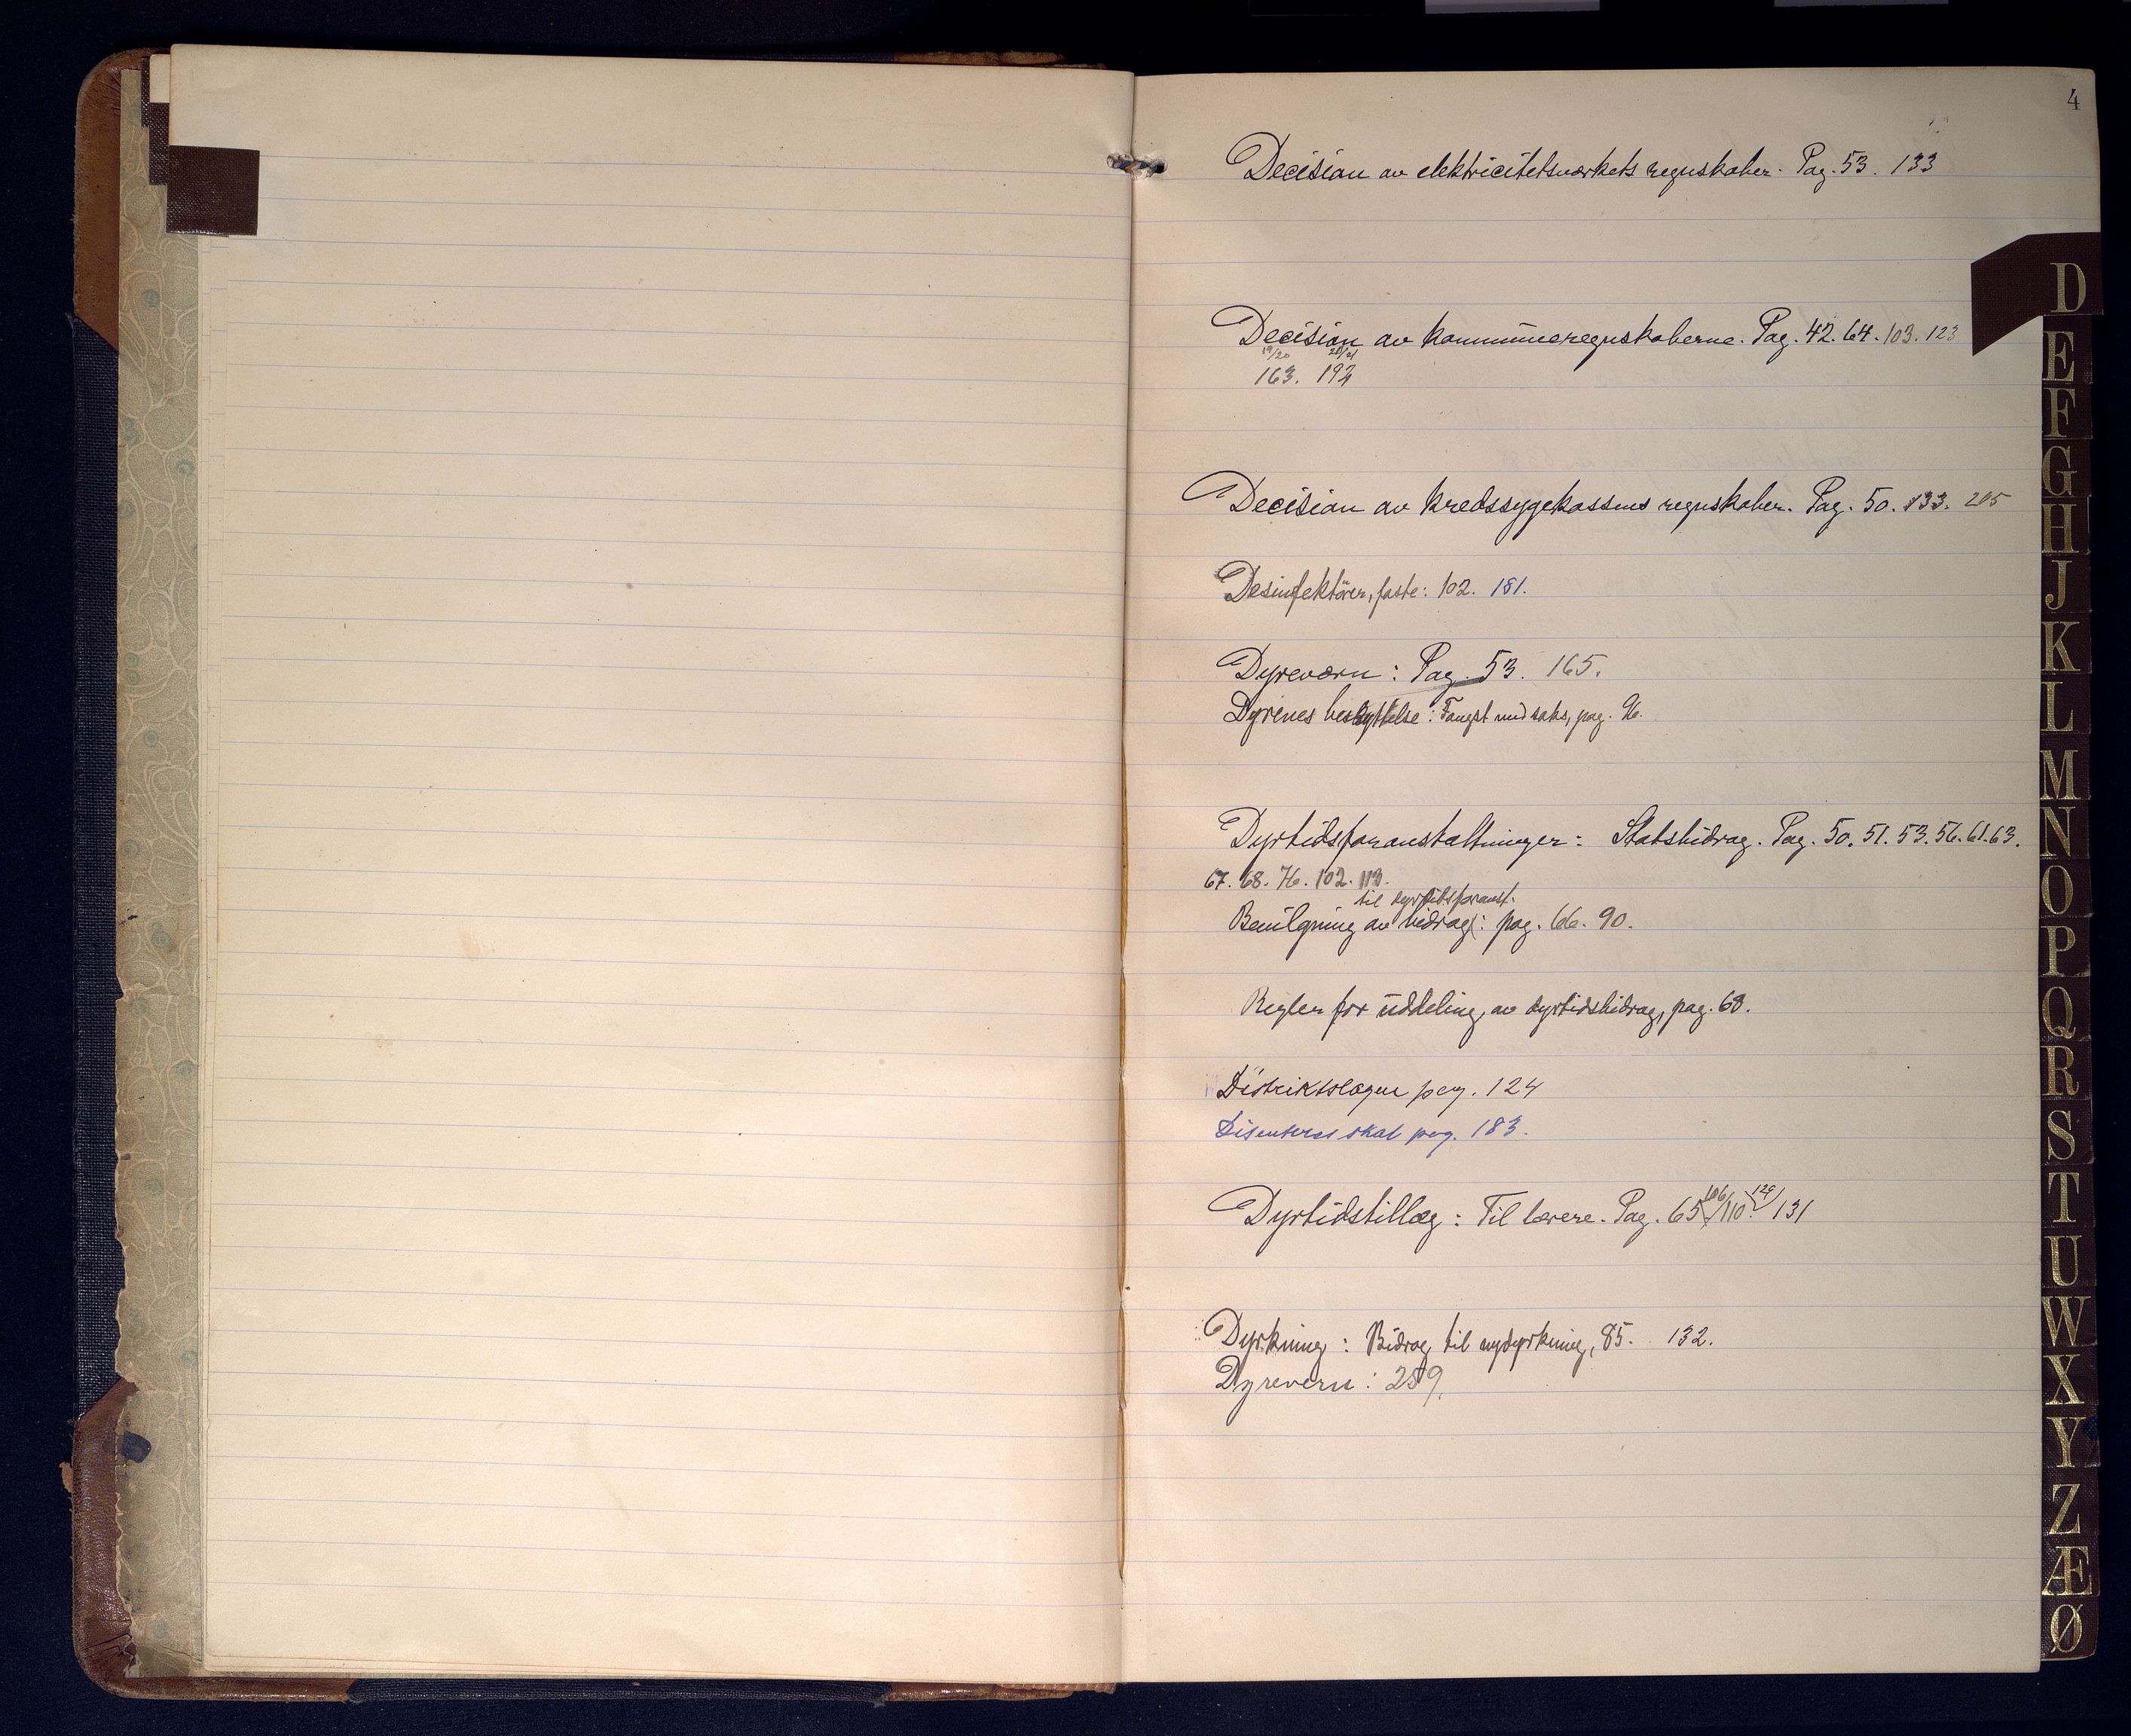 4
Decision av elektricitetsværkets regnskaber. Pag. 53. 133
Decision av kommuneregnskaberne. Pag. 42. 64. 103. 123
19/20 20/21
163. 192
Decision av kredssygekassens regnskaber. Pag. 50. 133. 205
Desinfektører, faste: 102. 181.
Dyreværn: Pag. 53. 165.
Dyrenes beskyttelse: Fangst med saks, pag. 96.
Dyrtidsforanstaltninger: Statsbidrag. Pag. 50. 51. 53. 56. 61. 63.
67. 68. 76. 102. 113.
til dyrtidsforanst.
Bevilgning av bidrag: pag. 66. 90.
Regler for uddeling av dyrtidsbidrag, pag. 68.
Distriktslægen pag. 124
Disenteres skat pag. 183.
Dyrtidstillæg: Til lærere. Pag. 65/106/110. 129/131
Dyrkning: Bidrag til nydyrkning, 85. 132.
Dyrevern: 259.
D
E
F
G
H
J
K
L
M
N
O
P
Q
R
S
T
U
W
X
Y
Z
Æ
Ø